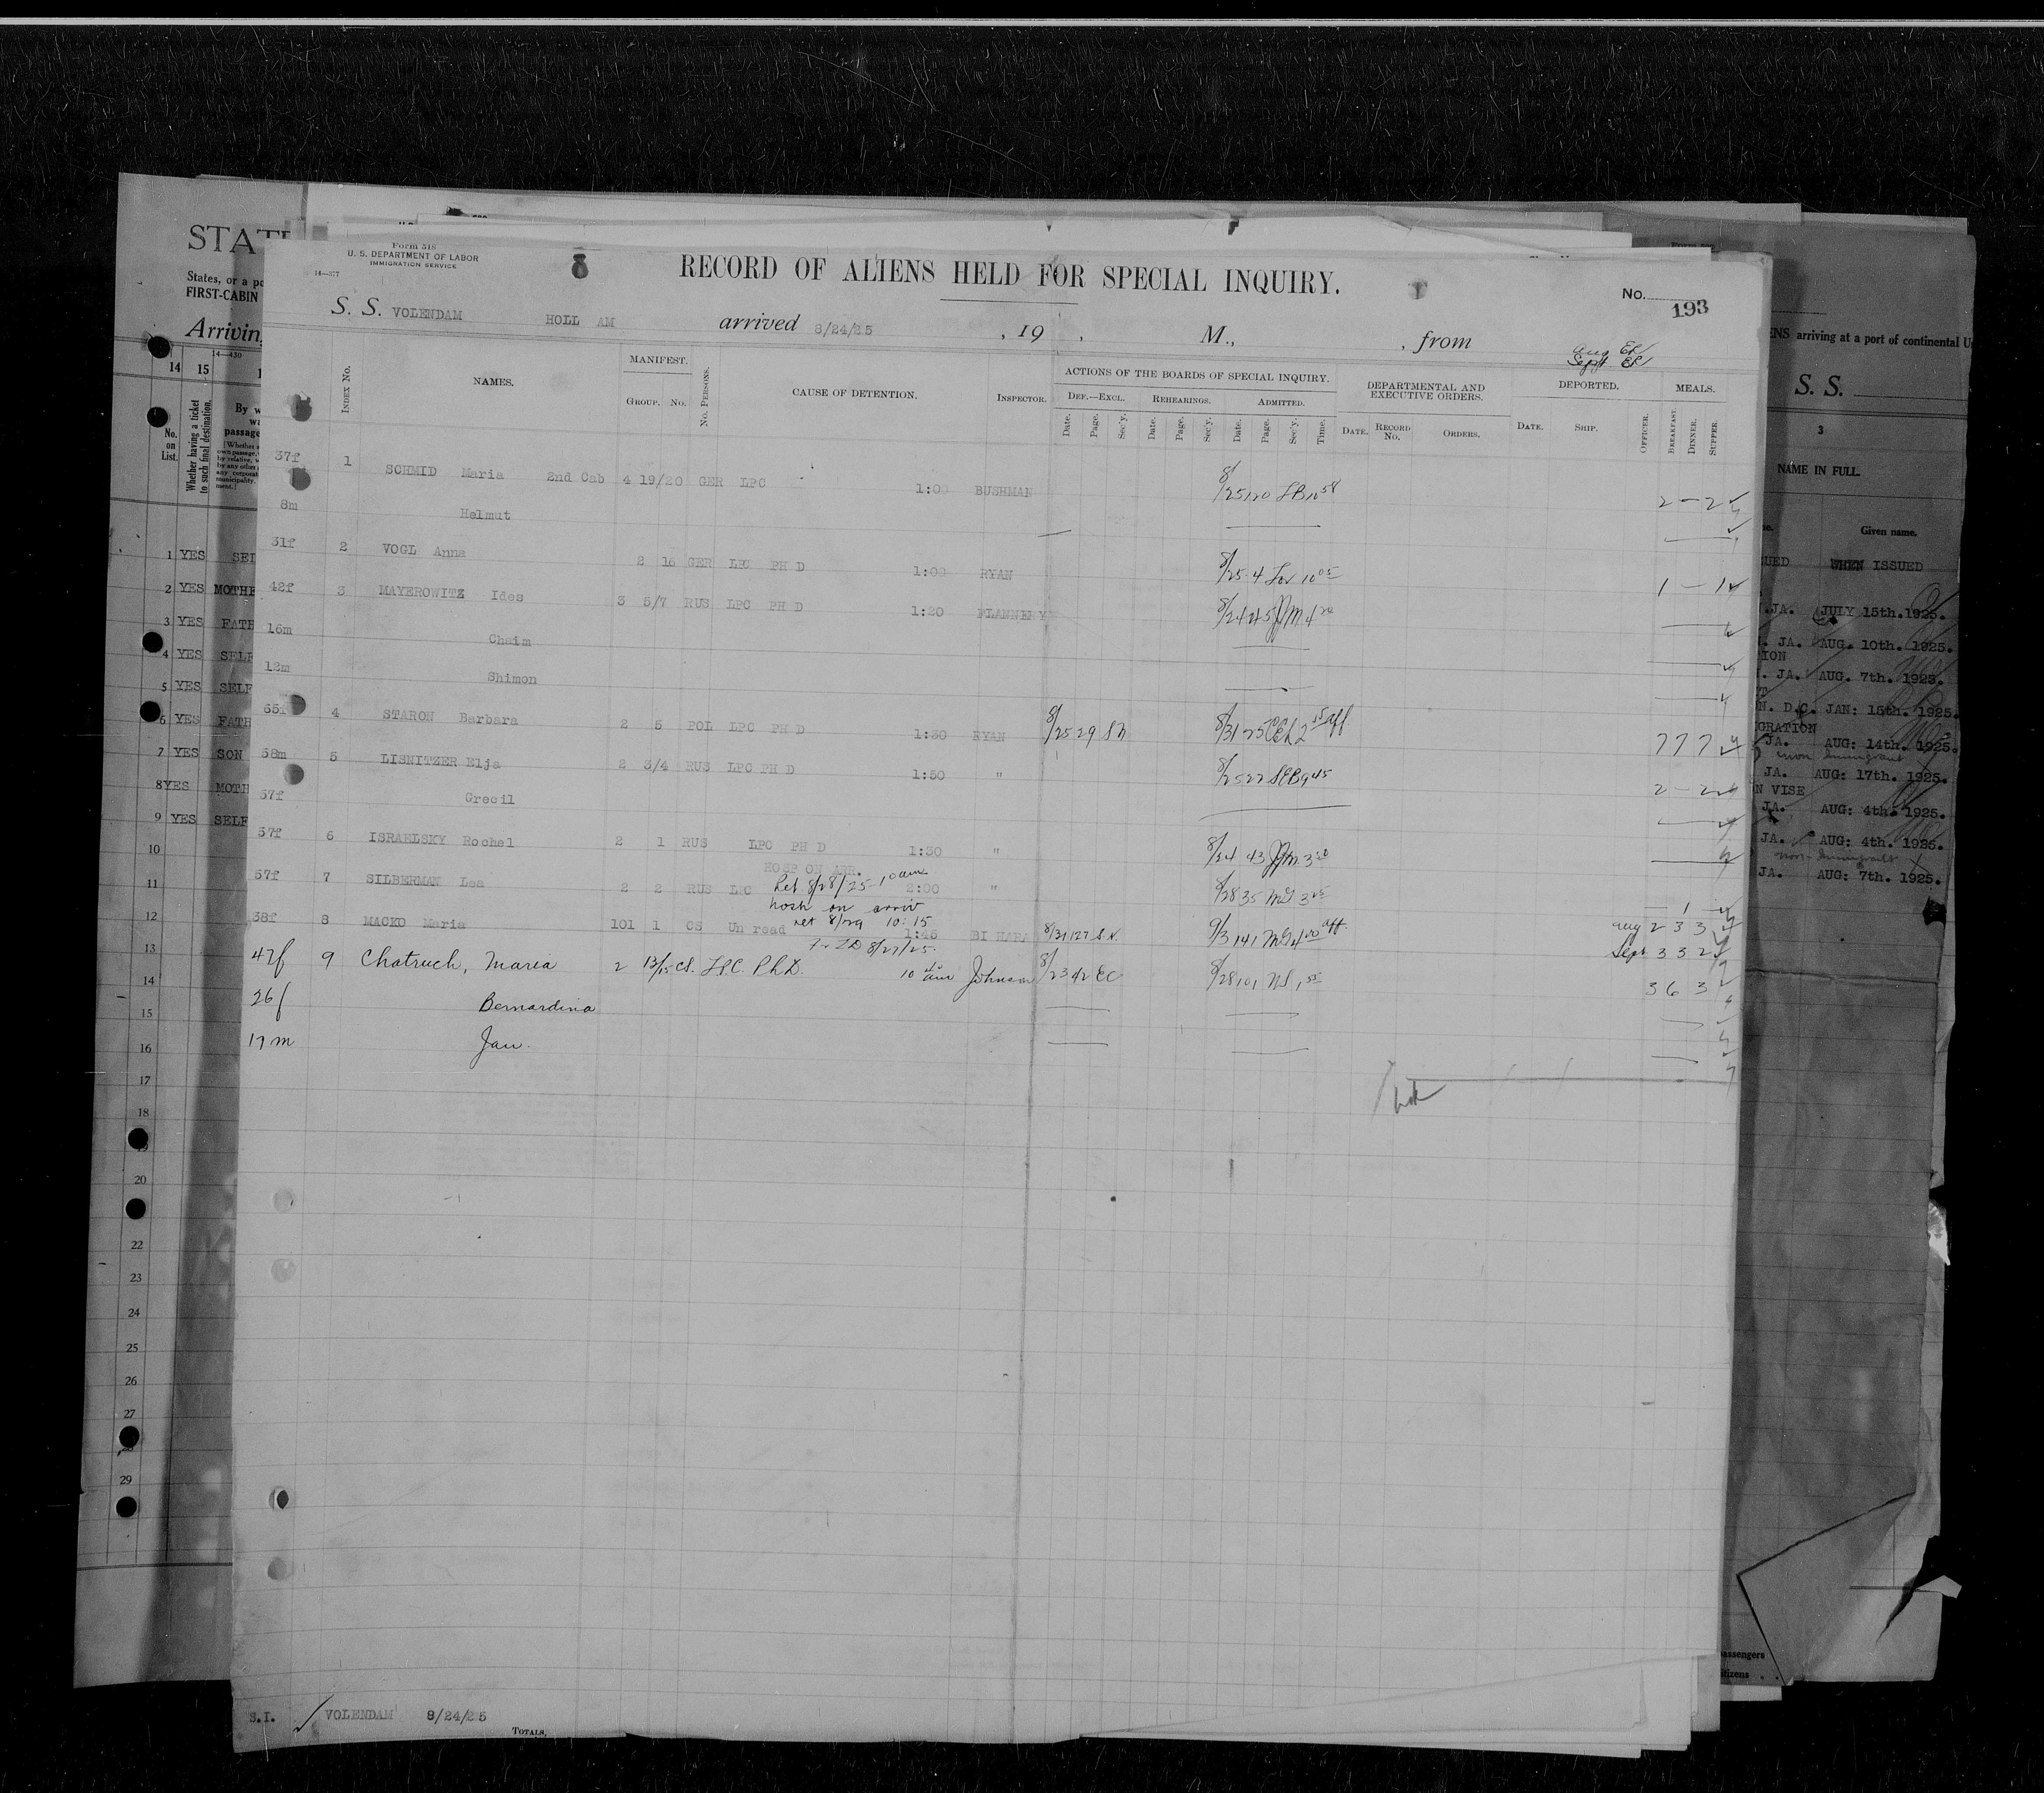 STAT
States, or a po
FIRST-CABIN
Arriving
14—430
14 15
No. on List.
Whether having a ticket to such final destination.
By w
passage
1 YES SEL
2 YES MOTHE
3 YES FATH
4 YES SELF
5 YES SELF
6 YES FATH
7 YES SON
8YES MOTH
9 YES SELF
10
11
12
13
14
15
16
17
18
19
20
22
23
24
25
26
27
29
Form 518
U. S. DEPARTMENT OF LABOR
IMMIGRATION SERVICE
16—377
RECORD OF ALIENS HELD FOR SPECIAL INQUIRY.
No. 193
S. S. VOLENDAM HOLL AM arrived 8/24/25 , 19 , M., , from
Aug EL
Sept. EL
INDEX No. NAMES. MANIFEST. GROUP. No. No. PERSONS. CAUSE OF DETENTION. INSPECTOR.
ACTIONS OF THE BOARDS OF SPECIAL INQUIRY. DEPARTMENTAL AND EXECUTIVE ORDERS. DEPORTED. MEALS.
DEF.—EXCL. REHEARINGS. ADMITTED.
Date. Page. Sec'y. Date. Page. Sec'y. Date. Page. Sec'y. Time. DATE. RECORD No. ORDERS. DATE. SHIP. OFFICER. BREAKFAST. DINNER. SUPPER.
37f 1 SCHMID Maria 2nd Cab 4 19/20 GER LPC 1:00 BUSHMAN 8/25 120 LB 10 58 2 — 2
8m Helmut
31f 2 VOGL Anna 2 16 GER LPC PH D 1:00 RYAN 8/25 4 10 05 1 — 1
42f 3 MAYEROWITZ Ides 3 5/7 RUS LPC PH D 1:20 FLANNERY 8/24 45 JJM 4 20
16m Chaim
12m Shimon
65f 4 STARON Barbara 2 5 POL LPC PH D 1:30 RYAN 8/25 29 8/31 25 2 15 aff 7 7 7
58m 5 LISNITZER Elja 2 3/4 RUS LPC PH D 1:50 " 8/25 27 SEB 9 45 2 — 2
57f Grecil
57f 6 ISRAELSKY Rochel 2 1 RUS LPC PH D 1:30 " 8/24 43 JJM 3 20
HOSP ON ARR.
57f 7 SILBERMAN Lea 2 2 RUS LPC Ret 8/28/25 10 am 2:00 " 8/28 35 MG 3 25 — 1
hosp on arriv
ret 8/29 10:15
38f 8 MACKO Maria 101 1 CS Un read 1:45 BI HARA 8/31 127 S.N. 9/3 141 MG 4 00 aff. Aug 2 3 3
8/27/25. Sept 3 3 2
47f 9 Chatruch, Maria 2 13/15 CS. LPC. Ph.D. 10 am Johnson 8/23 42 EC 8/28 101 3 6 3
26f Bernardina
17m Jan.
S.I. VOLENDAM 8/24/25
TOTALS.
ENS arriving at a port of continental U
S. S.
3
NAME IN FULL.
Given name.
UED WHEN ISSUED
JA. JULY 15th.1925.
JA. AUG. 10th. 1925.
ION
JA. AUG. 7th. 1925.
N. D.C. JAN: 15th. 1925.
GRATION
JA. AUG: 14th. 1925.
non immigrant
JA. AUG: 17th. 1925.
N VISE
JA. AUG: 4th. 1925.
JA. AUG: 4th. 1925.
non-immigrant
JA. AUG: 7th. 1925.
assengers
itizens